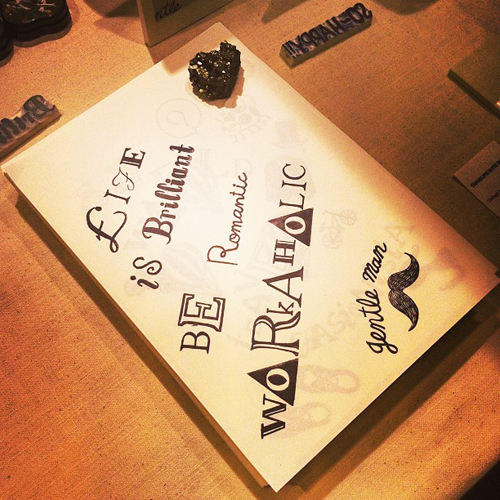 LIFE
iS Brilliant
BE Romantic
WORKAHOLIC
gentle man